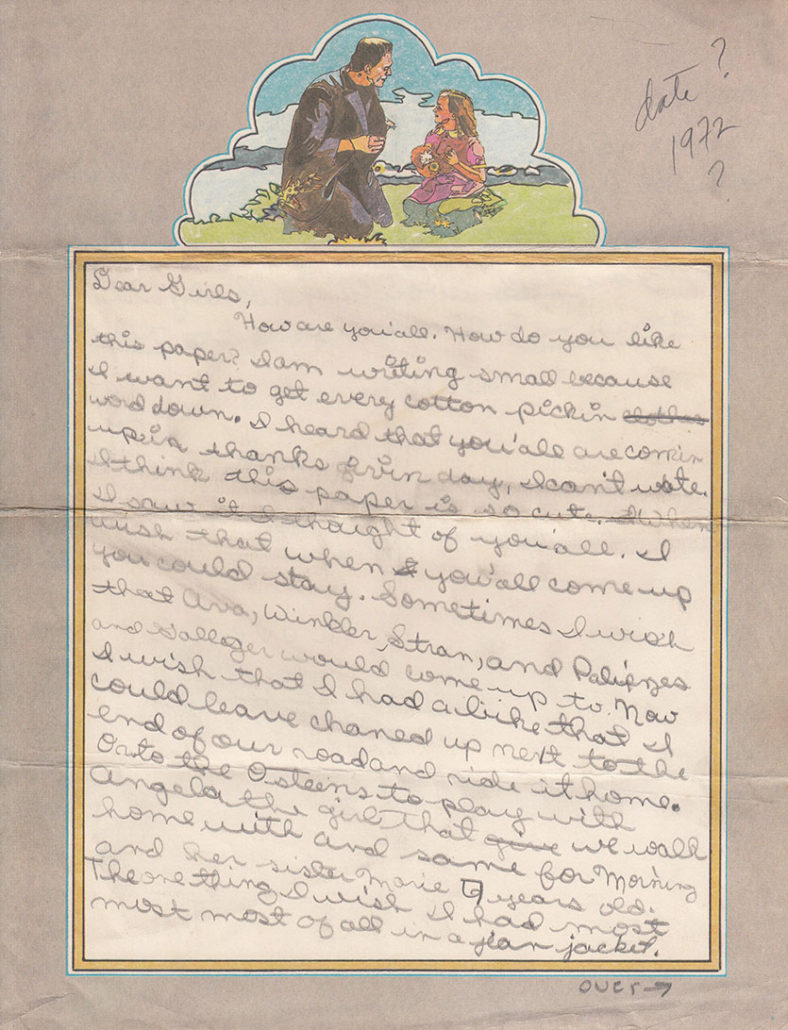 date ?
1972
?
Dear Girls,
How are you'all. How do you like
this paper? I am writing small because
I want to get every cotton pickin
word down. I heard that you'all are comin
up in thanks givin day, I can't wate.
I think this paper is so cute. When
I saw it I thought of you'all. I
wish that when you'all come up
you could stay. Sometimes I wish
that Ava, Winkler, Stran, and
and Galloger would come up to. Now
I wish that I had a bike that I
could leave chaned up next to the
end of our road and ride it home.
Or to the Osteens to play with
Angela the girl that we walk
home with and same for Morning
and her sister Marie 7 years old.
The one thing I wish I had most
most most of all in a jean jacket.
over→